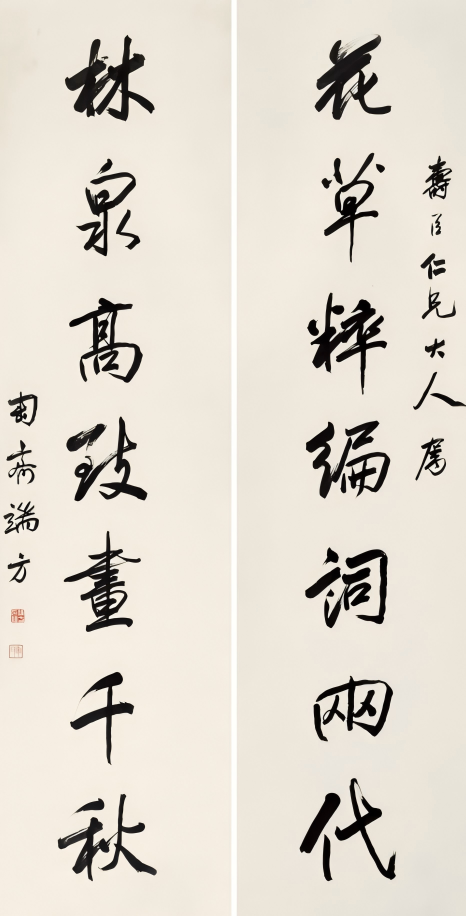 壽臣仁兄大人屬
花草粹編詞兩代
林泉高致畫千秋
匋齋端方